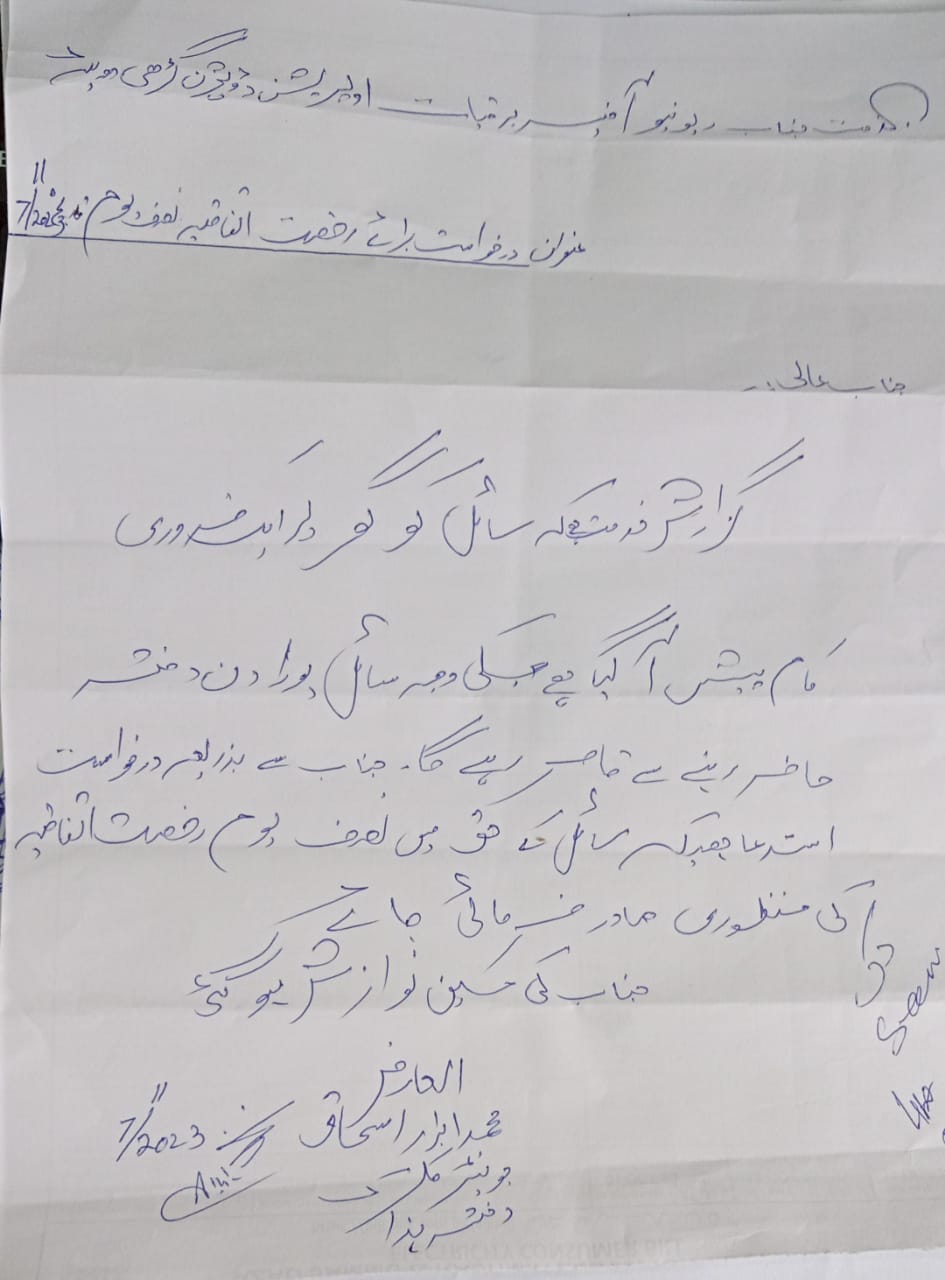 بخدمت جناب ریونیو آفیسر برقیات اوپریشن ڈویژن گڑھی دوپٹہ
عنوان درخواست برائے رخصت اتفاقیہ نصف یوم
11
7/2023
جناب عالی:۔
گزارش خدمت ہیکہ سائل کو گھر ایک ضروری
کام پیش آ گیا ہے جسکی وجہ سائل پورا دن دفتر
حاضر رہنے سے قاصر رہے گا۔ جناب سے بذریعہ درخواست
استدعا ہیکہ سائل کے حق میں نصف یوم رخصت اتفاقیہ
کی منظوری صادر فرمائی جائے
جناب کی عین نوازش ہو گئی
Seen
العارض
محمد ابرار اسحاق
11
7/2023
جونیئر کلرک
دفتر ہذا
ELECTRICITY CONSUMER BILL